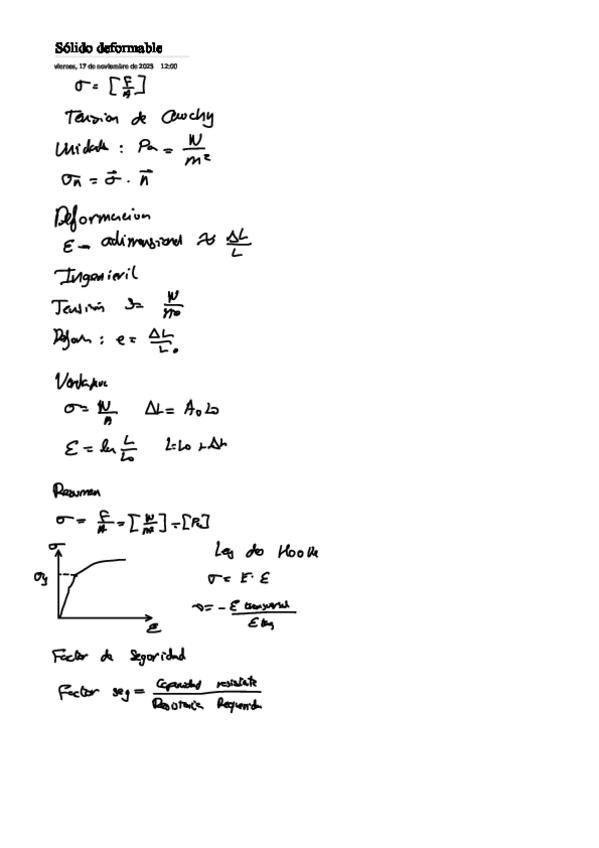 Sólido deformable
viernes, 17 de noviembre de 2023 12:00
σ = [F/A]
Tension de Cauchy
Unidade : Pa = N/m²
σn = σ⃗ · n⃗
Deformacion
ε – adimensional ≈ ΔL/L
Ingenieril
Tensión
e = ΔL/L₀
σ = N/A ΔL = A₀ L₀
ε = ln L/L₀ L = L₀ + ΔL
Resumen
σ = F/A = [N/m²] = [Pa]
σ
σy
ε
Ley de Hooke
σ = E · ε
ν = - ε transversal / ε long
Factor de Seguridad
Factor seg = Capacidad resistente / Resistencia Requerida